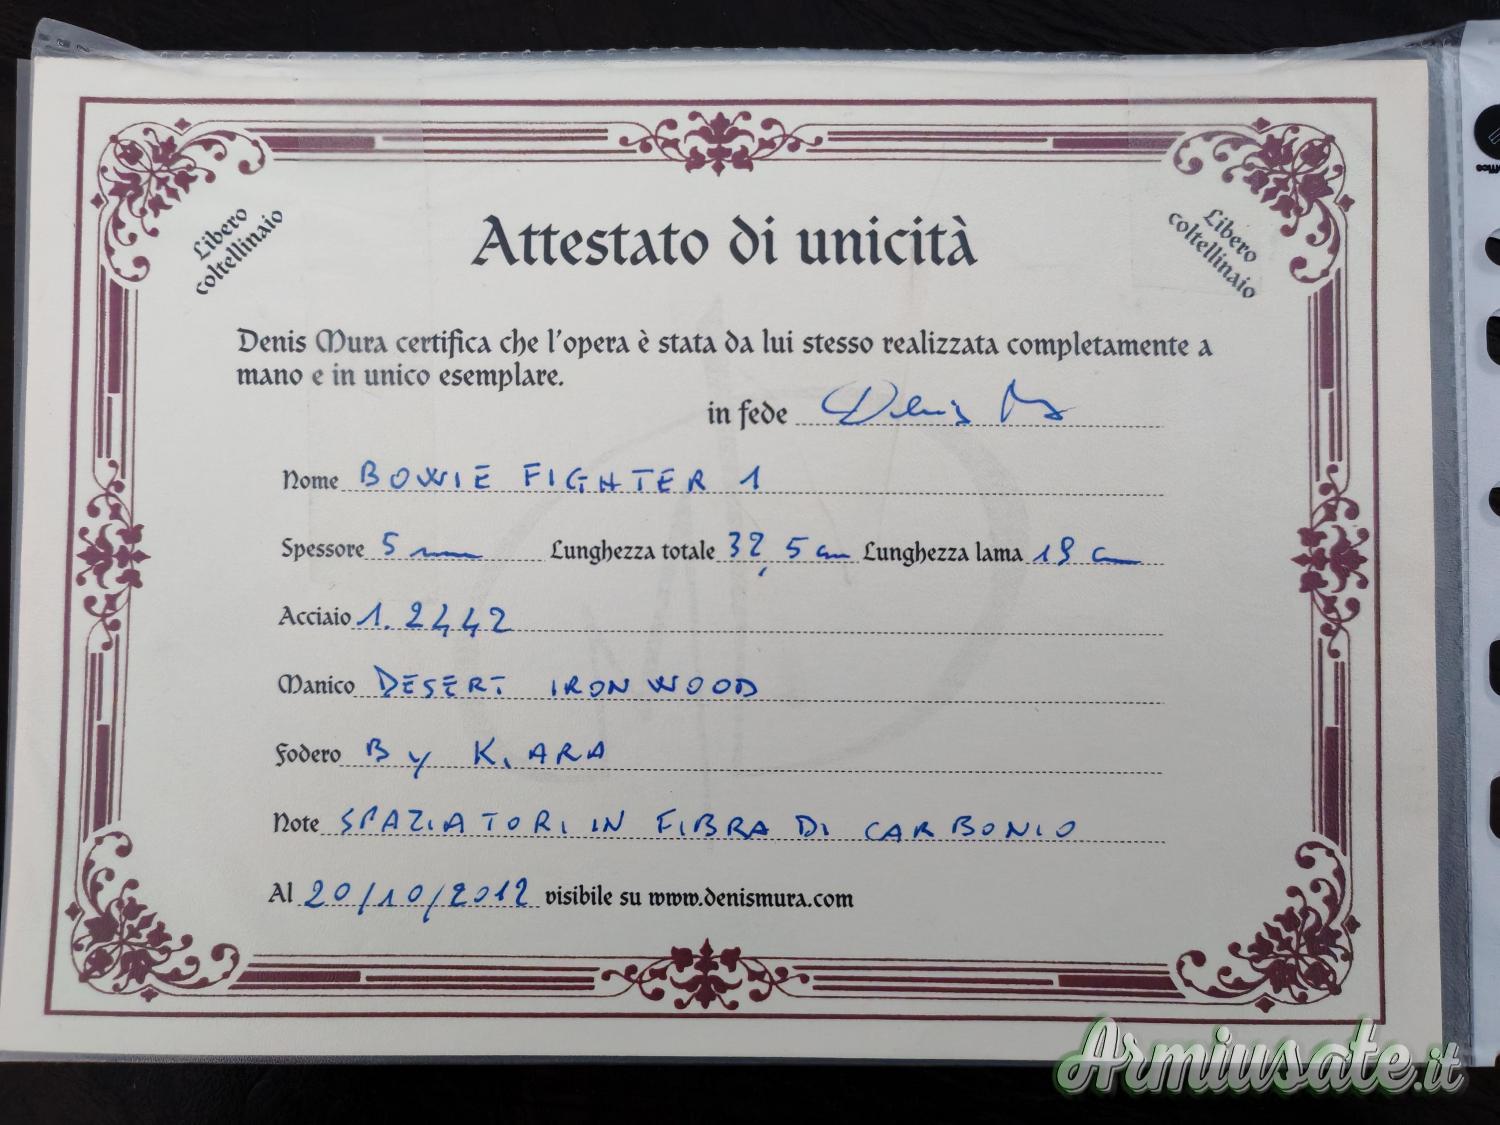 Libero
coltellinaio
Libero
coltellinaio
Attestato di unicità
Denis Mura certifica che l'opera è stata da lui stesso realizzata completamente a
mano e in unico esemplare.
in fede Denis
Nome BOWIE FIGHTER 1
Spessore 5 mm Lunghezza totale 32,5 cm Lunghezza lama 19 cm
Acciaio 1.2442
Manico DESERT IRON WOOD
Fodero By KIARA
Note SPAZIATORI IN FIBRA DI CARBONIO
Al 20/10/2012 visibile su www.denismura.com
Armiusate.it